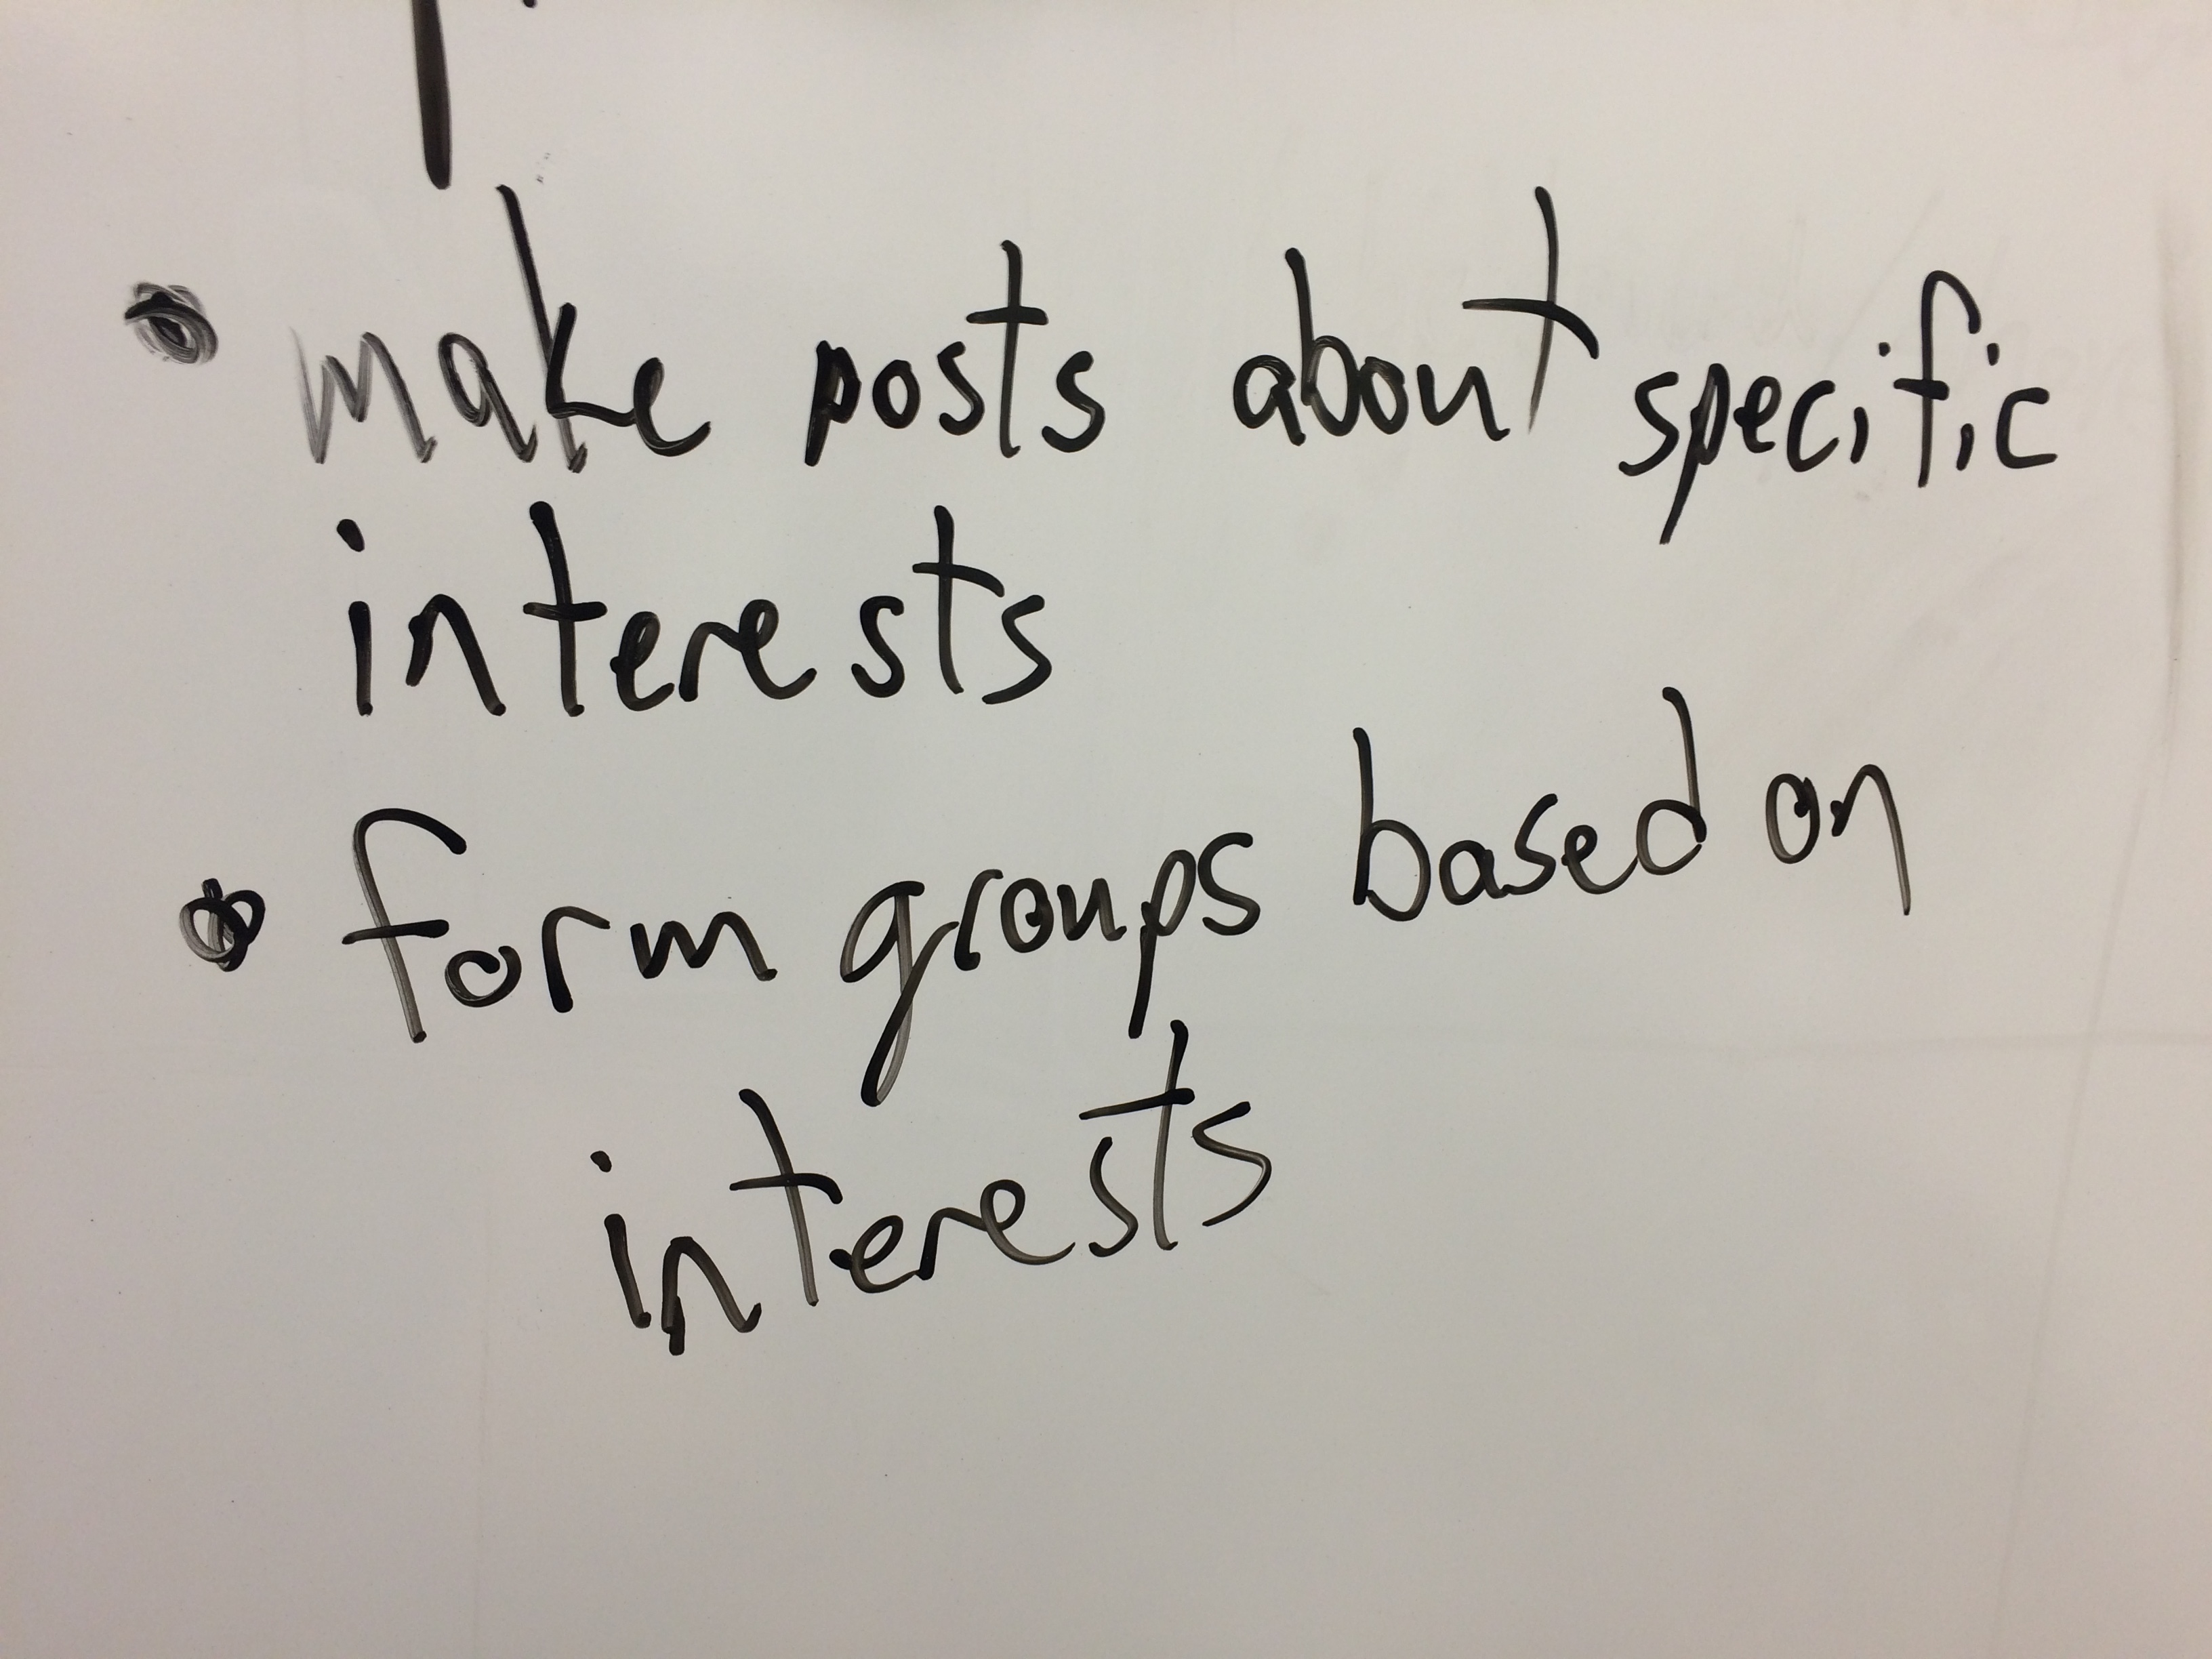 • make posts about specific
interests
• form groups based on
interests